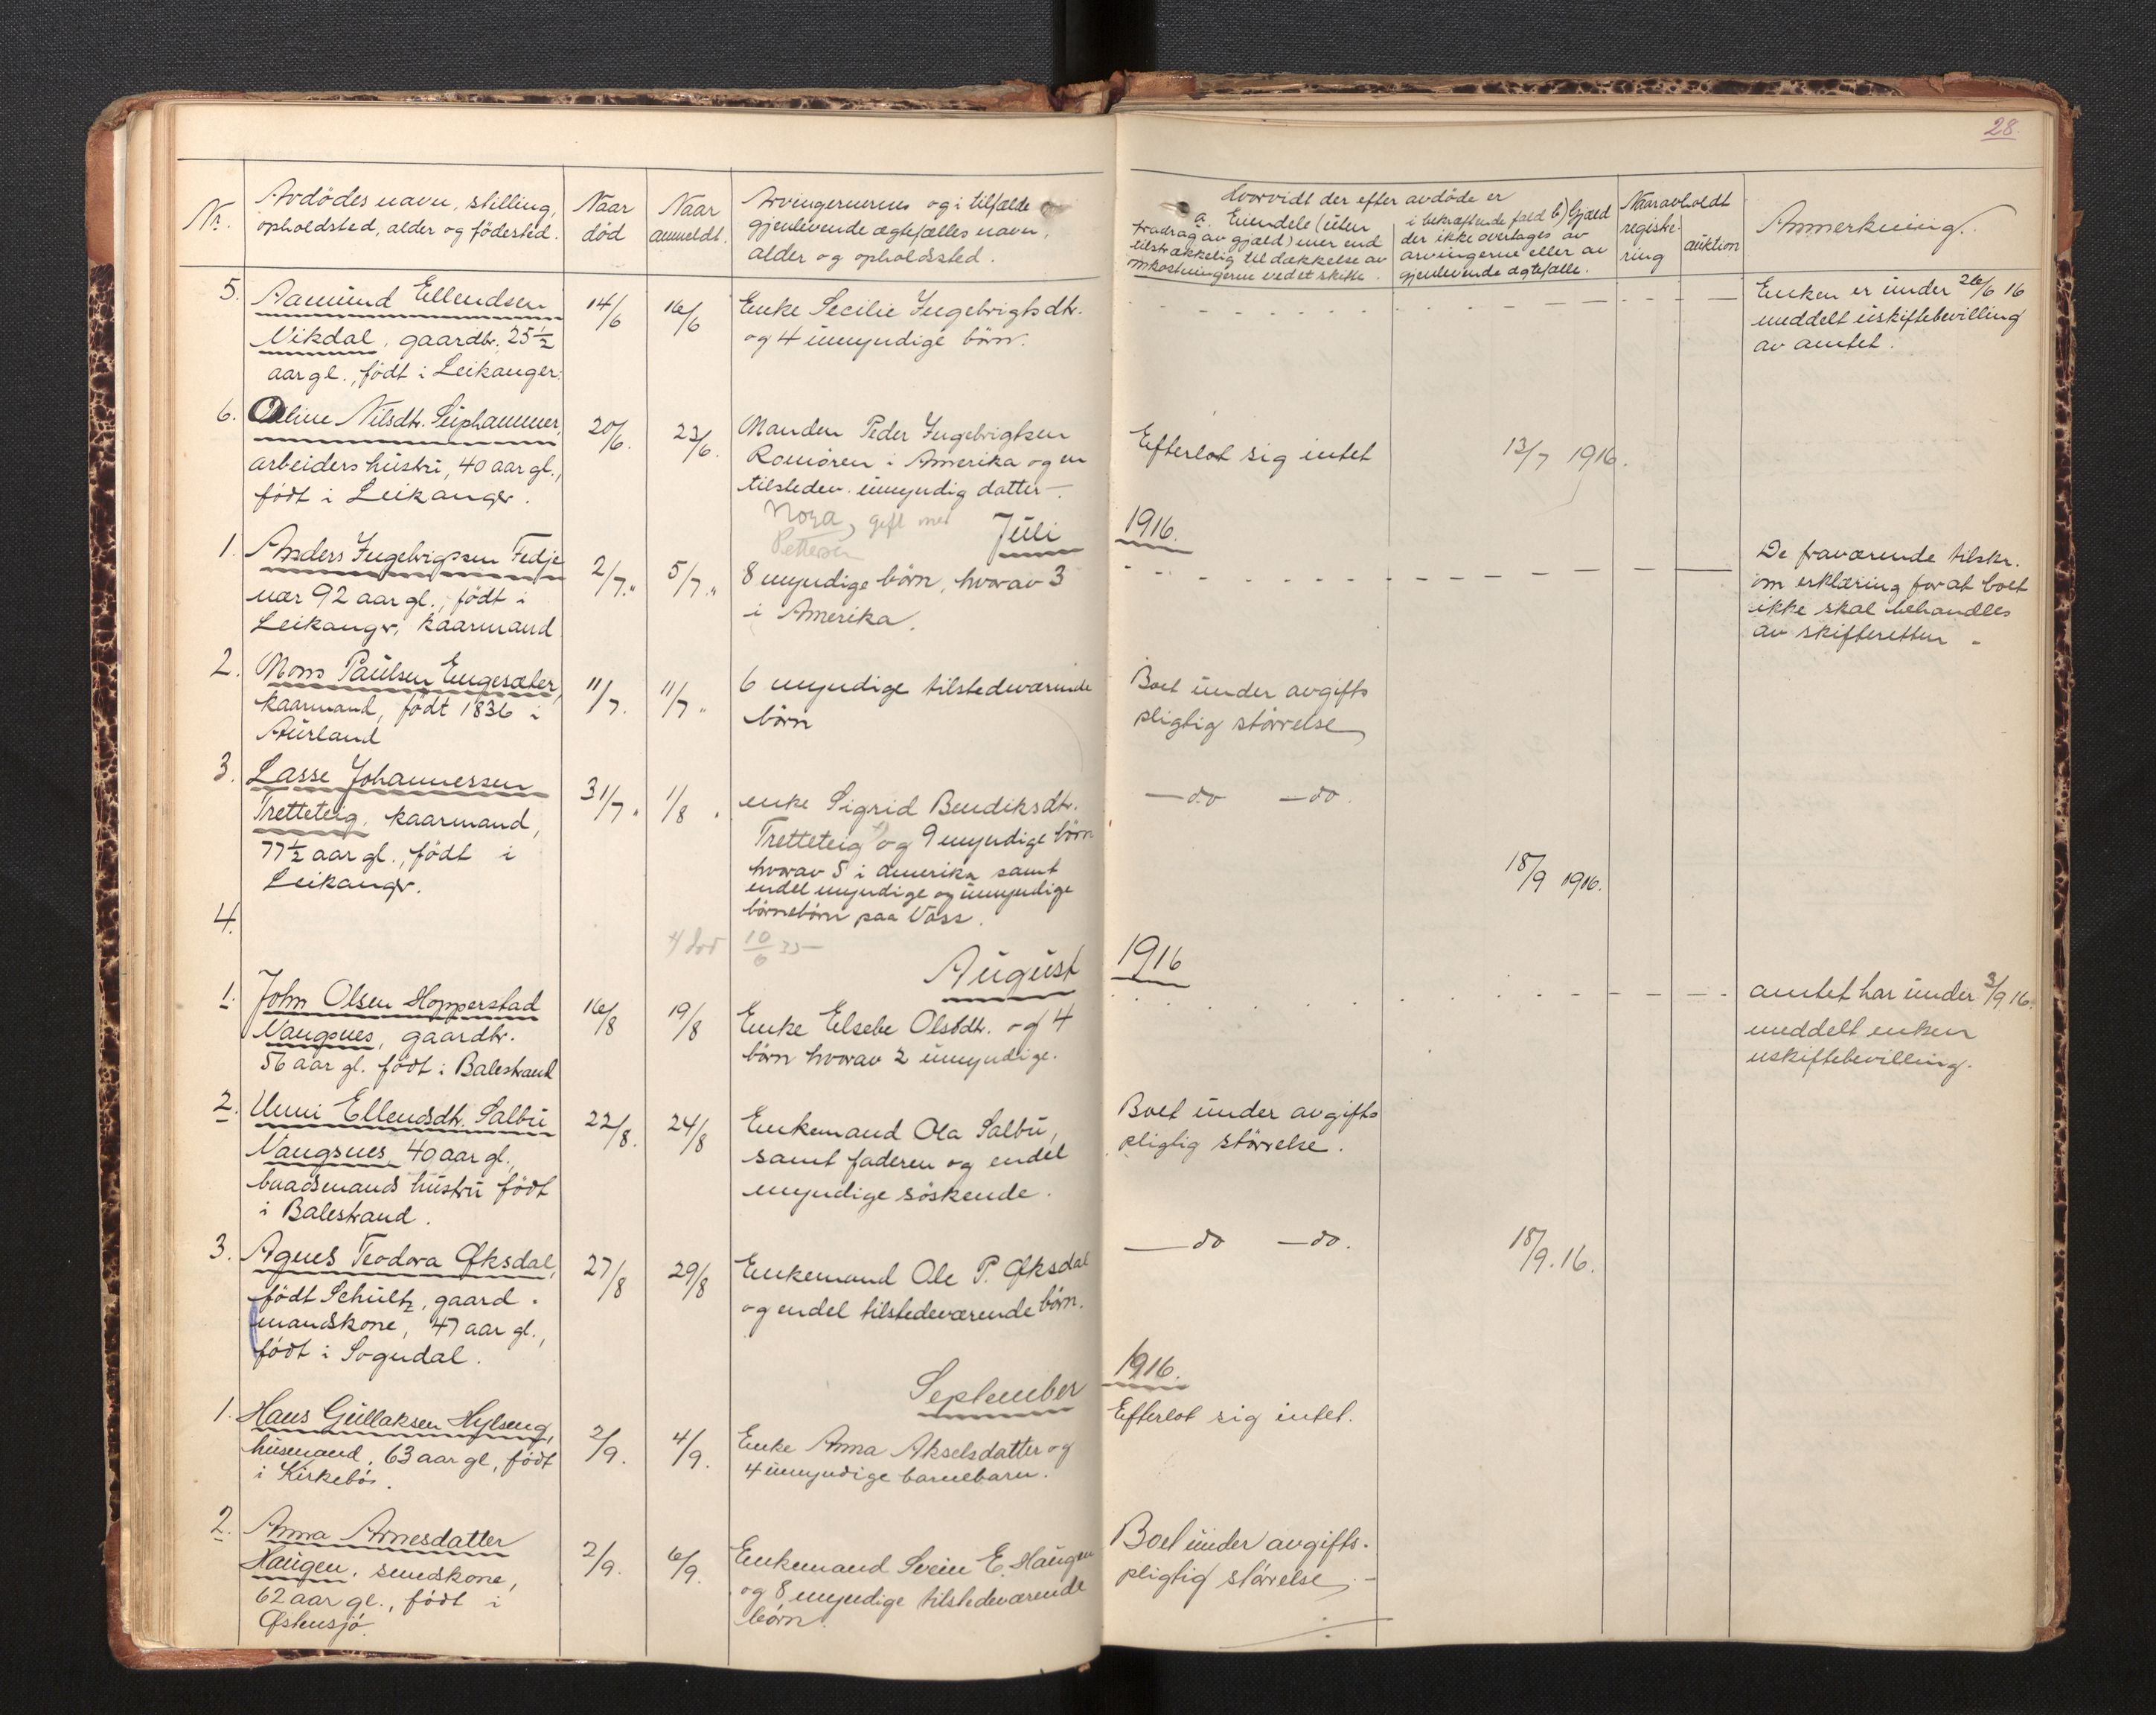 28.
Nr.
Avdödes navn, stilling,
opholdsted, alder og födested.
Naar
död
Naar
anmeldt.
Arvingernes og i tilfælde
gjenlevende ægtefælles navn,
alder og opholdssted.
Hvorvidt der efter avdöde er
a. Eiendele (uten
fradrag av gjæld) mer end
tilstrækkelig til dækkelse av
omkostningerne ved et skifte.
i bekræftende fald b) Gjæld
der ikke overtages av
arvingerne eller av
gjenlevende ægtefælle.
Naar avholdt
registre-
ring
auktion
Anmerkning.
5. Aamund Ellendsen
Vikdal, gaardbr. 25½
aar gl., födt i Leikanger.
14/6
16/6
Enke Secilie Ingebrigtsdtr.
og 4 umyndige börn.
Enken er under 26/6 16
meddelt uskiftebevilling
av amtet.
6. Oline Nilsdtr. Suphammer,
arbeiders hustru, 40 aar gl.,
födt i Leikanger.
20/6.
23/6.
Manden Peder Ingebrigtsen
Romören i Amerika og en
tilstedev. umyndig datter
Nora, gift med
Pettersen
Efterlot sig intet
13/7 1916.
Juli 1916.
1. Anders Ingebrigtsen Fedje
nær 92 aar gl., födt i
Leikanger, kaarmand
2/7.
5/7.
8 myndige börn, hvorav 3
i Amerika.
De fraværende tilskr.
om erklæring for at boet
ikke skal behandles
av skifteretten -
2. Mons Paulsen Engesæter,
kaarmand, födt 1836 i
Aurland
11/7.
11/7.
6 myndige tilstedeværende
börn
Boet under avgifts
pligtig störrelse
3. Lasse Johannessen
Tretteteig, kaarmand,
77½ aar gl., födt i
Leikanger.
31/7.
1/8.
enke Sigrid Bendiksdtr.
Tretteteig og 9 myndige börn
hvorav 5 i Amerika samt
endel myndige og umyndige
börnebörn paa Voss.
— do — do.
18/9 1916.
4.
10/6 35
August 1916
1. John Olsen Hopperstad
Vangsnes, gaardbr.
56 aar gl. födt i Balestrand
16/8
19/8
Enke Elsebe Olsdtr. og 4
börn hvorav 2 umyndige.
amtet har under 3/9 16.
meddelt enken
uskiftebevilling.
2. Unni Ellendsdtr. Salbu
Vangsnes, 40 aar gl.,
buadsmands hustru födt
i Balestrand.
22/8.
24/8
Enkemand Ola Salbu,
samt faderen og endel
myndige söskende.
Boet under avgifts
pligtig störrelse.
3. Agnes Teodora Øksdal,
födt Schultz, gaard-
mandskone, 47 aar gl.,
födt i Sogndal.
27/8
29/8
Enkemand Ole P. Øksdal
og endel tilstedeværende börn.
— do — do.
18/9. 16.
September 1916.
1. Hans Gullaksen Hylseng,
husmand, 63 aar gl, födt
i Kirkebö.
2/9.
4/9.
Enke Anna Akselsdatter og
4 umyndige barnebarn.
Efterlot sig intet.
2. Anna Arnesdatter
Haugen, smedskone,
62 aar gl., födt i
Østensjö.
2/9.
6/9.
Enkemand Svein E. Haugen
og 8 myndige tilstedeværende
börn.
Boet under avgifts-
pligtig störrelse.